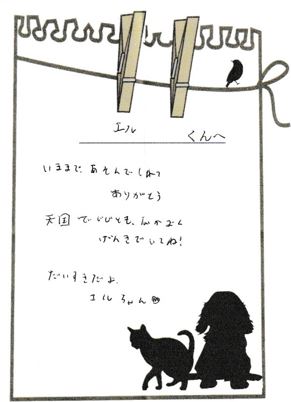 エル くんへ
いままで、あそんでくれて
ありがとう
天国でいじとも、なかよく
げんきでしてね!
だいすきだよ
エルちゃん